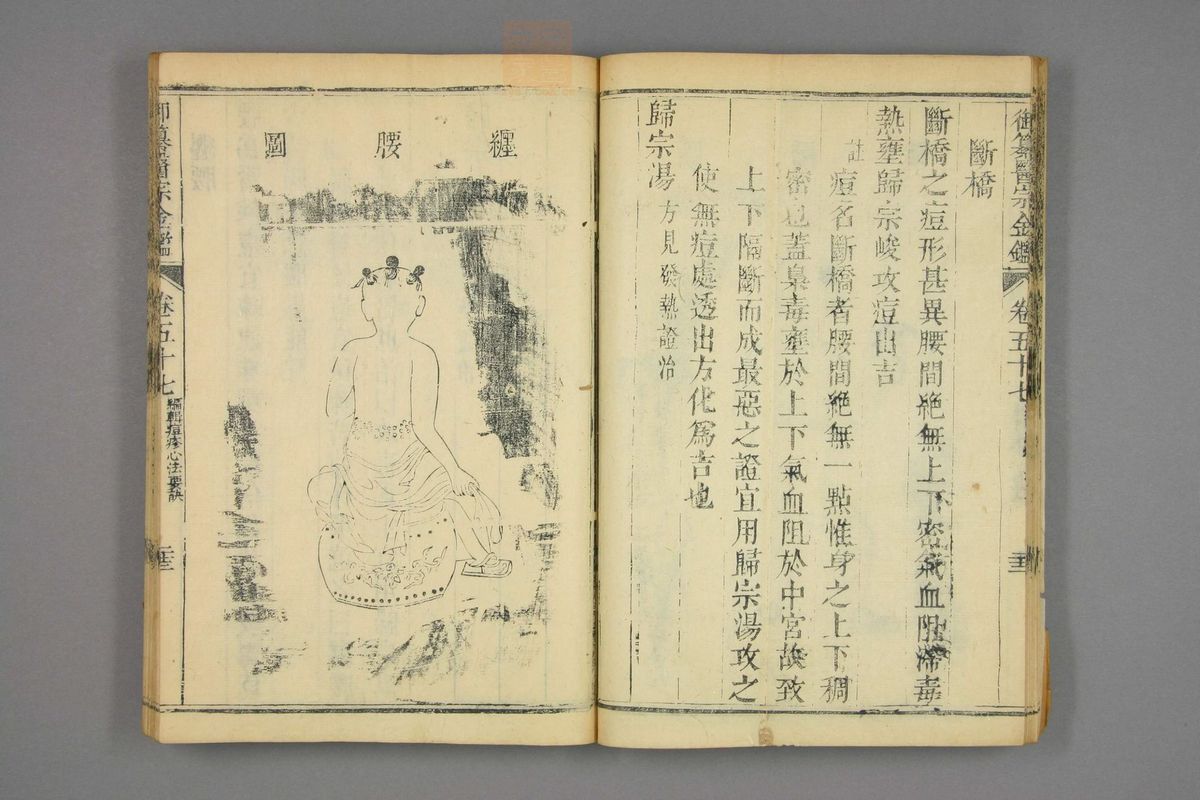 御纂醫宗金鑑 卷五十七
斷橋
斷橋之痘形甚異腰間絶無上下密氣血阻滯毒
熱壅歸宗峻攻痘出吉
註 痘名斷橋者腰間絶無一點惟身之上下稠
密也蓋梟毒壅於上下氣血阻於中宮故致
上下隔斷而成最惡之證宜用歸宗湯攻之
使無痘處透出方化爲吉也
歸宗湯 方見發熱證治
纏腰圖
御纂醫宗金鑑 卷五十七 編輯痘疹心法要訣